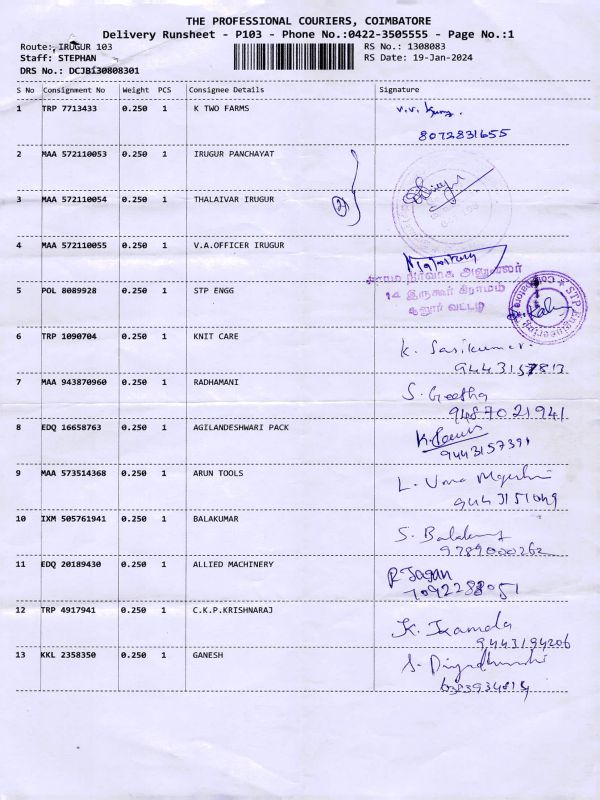 THE PROFESSIONAL COURIERS, COIMBATORE
Delivery Runsheet - P103 - Phone No.:0422-3505555 - Page No.:1
Route: IRUGUR 103
RS No.: 1308083
Staff: STEPHAN
RS Date: 19-Jan-2024
DRS No.: DCJB130808301
S No Consignment No Weight PCS Consignee Details Signature
1 TRP 7713433 0.250 1 K TWO FARMS
8072831655
2 MAA 572110053 0.250 1 IRUGUR PANCHAYAT
3 MAA 572110054 0.250 1 THALAIVAR IRUGUR
4 MAA 572110055 0.250 1 V.A.OFFICER IRUGUR
கிராம நிர்வாக அலுவலர்
14 இருகூர் கிராமம்
சூலூர் வட்டம்
5 POL 8089928 0.250 1 STP ENGG
STP Engineering * Coimbatore *
6 TRP 1090704 0.250 1 KNIT CARE K. Sasikumar
9443157813
7 MAA 943870960 0.250 1 RADHAMANI S. Geetha
9487021941
8 EDQ 16658763 0.250 1 AGILANDESHWARI PACK
9443157391
9 MAA 573514368 0.250 1 ARUN TOOLS L. Uma
10 IXM 505761941 0.250 1 BALAKUMAR S. Balakumar
9789000262
11 EDQ 20189430 0.250 1 ALLIED MACHINERY R Jagan
7092288051
12 TRP 4917941 0.250 1 C.K.P.KRISHNARAJ K. Kamala
9443194206
13 KKL 2358350 0.250 1 GANESH